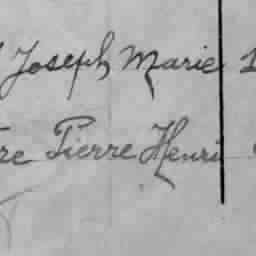 Joseph Marie 1
re Pierre Henri